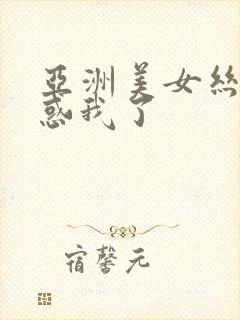 亞洲美女絲
惑我了
宿馨元